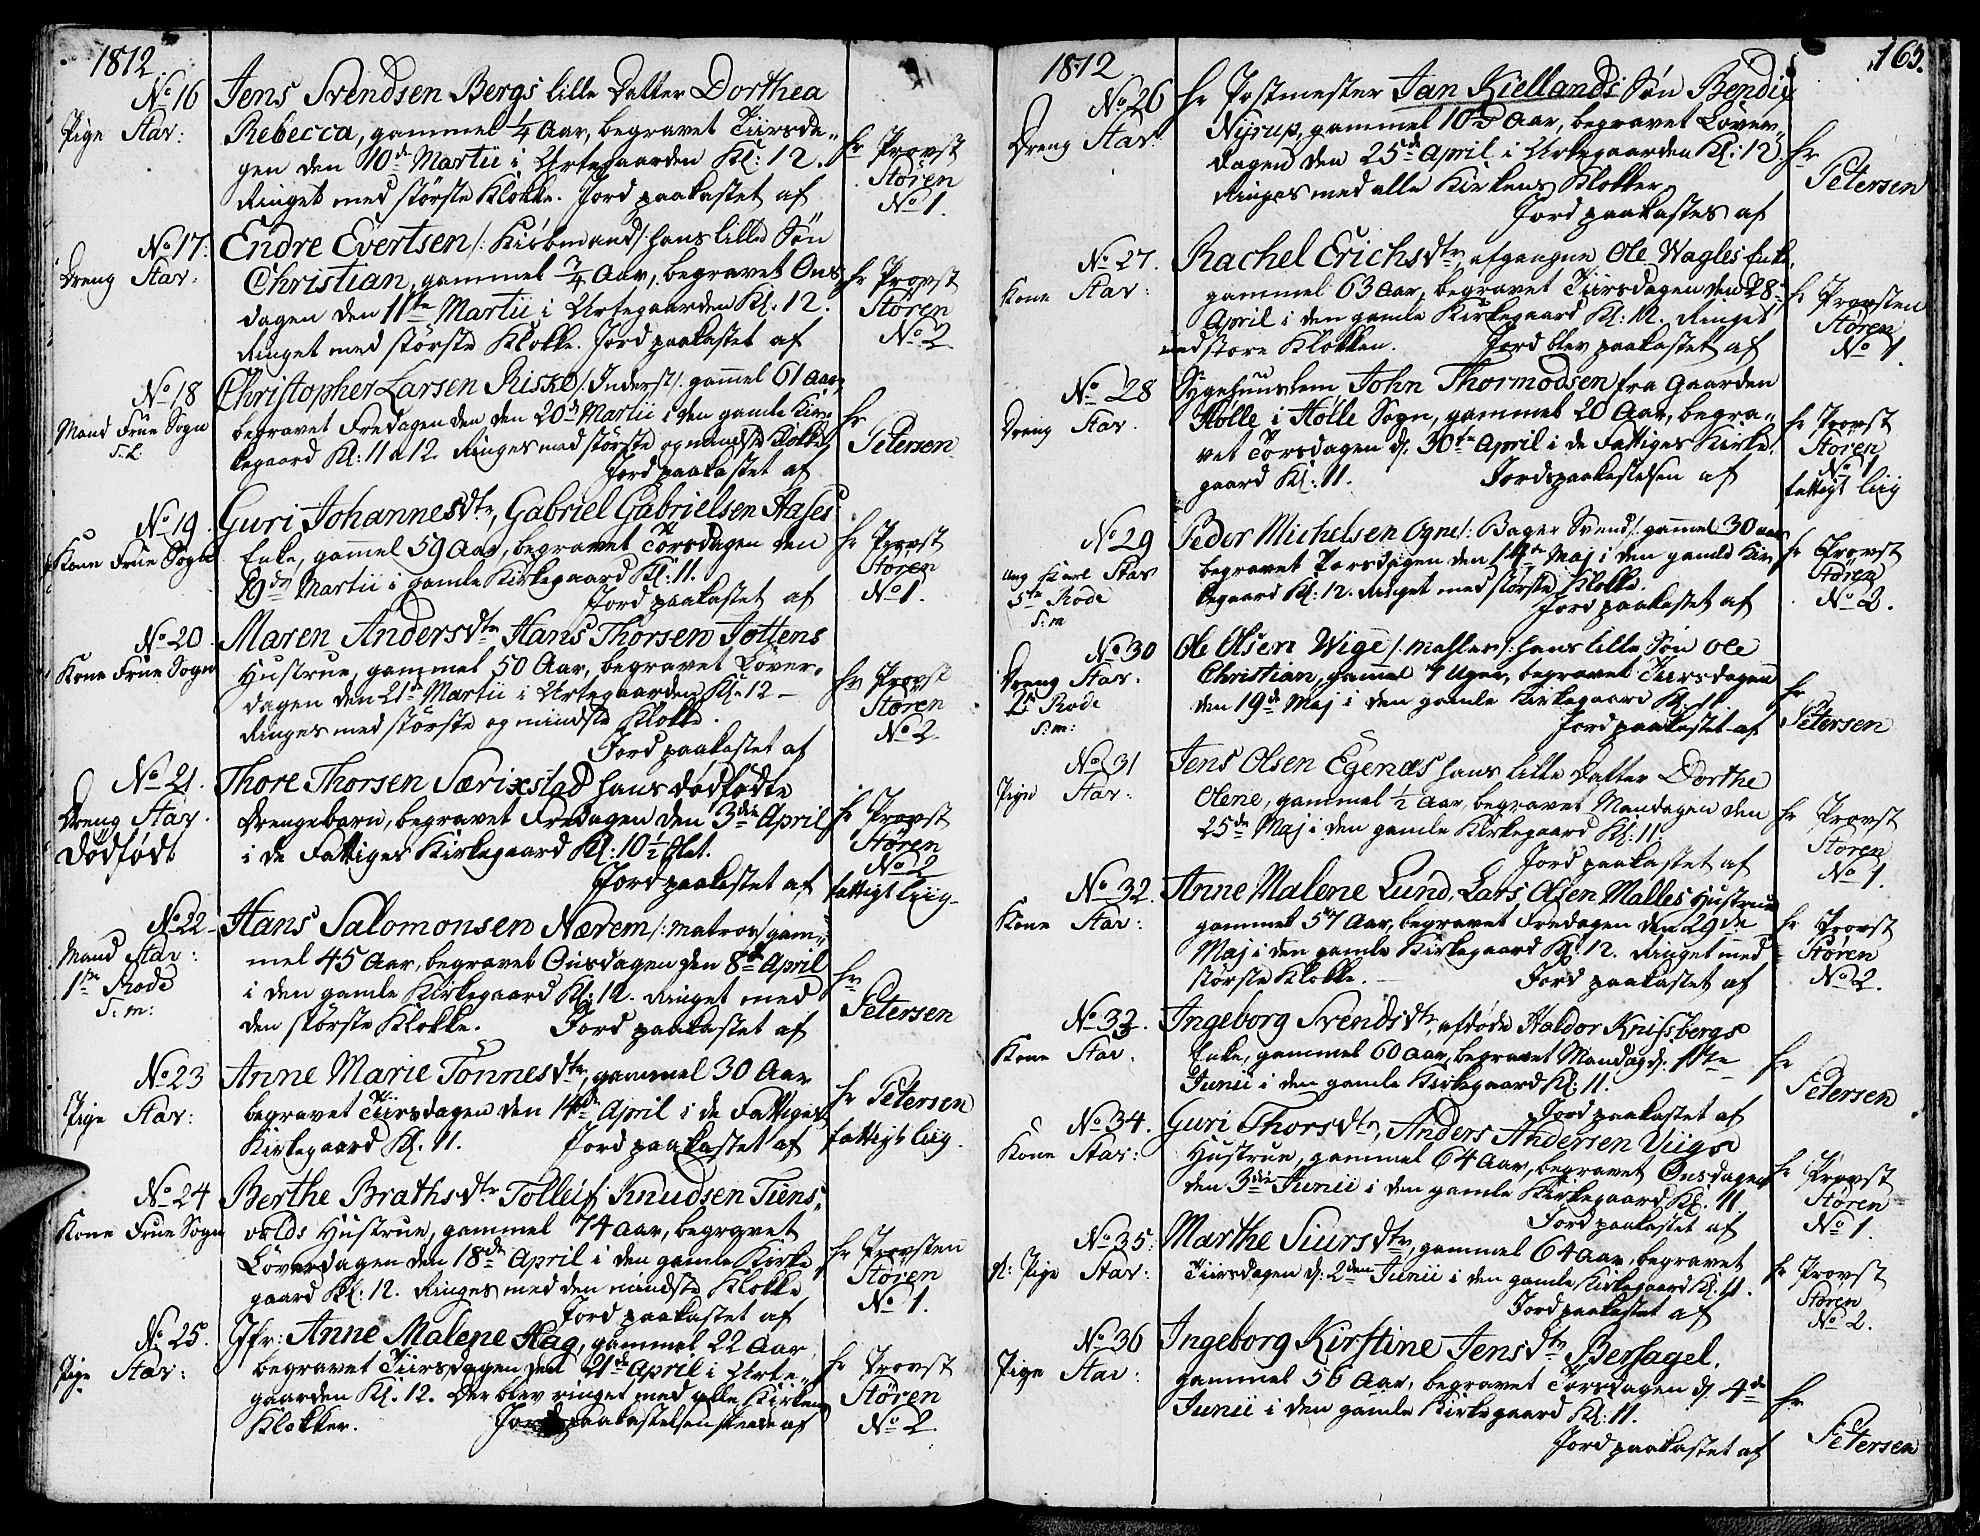 1812
No 16
Pige Stav:
Jens Svendsen Bergs lille Datter Dorthea
Rebecca, gammel 1/4 Aar, begravet Tiirsda-
gen den 10de Martii i Urtegaarden Kl: 12.
Ringet med störste Klokke. Jord paakastet af
hr Provst
Støren
No 1.
No 17.
Dreng Stav:
Endre Evertsen /: Kiöbmand :/ hans lille Søn
Christian, gammel 3/4 Aar, begravet Ons-
dagen den 11te Martii i Urtegaarden Kl. 12.
Ringet med störste Klokke. Jord paakastet af
hr Provst
Støren
No 2
No 18
Mand Frue Sogn
Christopher Larsen Riske /: Inderst :/ gammel 61 Aar,
begravet Fredagen den 20de Martii i den gamle Kir-
kegaard Kl: 11 a 12. Ringes med störste og mindste Klokke
Jord paakastet af
hr
Petersen
No 19.
Kone Frue Sogn
Guri Johannesdtr, Gabriel Gabrielsen Hases
Enke, gammel 59 Aar, begravet Torsdagen den
19de Martii i gamle Kirkegaard Kl: 11.
Jord paakastet af
hr Provst
Støren
No 1.
No 20
Kone Frue Sogn
Maren Andersdtr Hans Thorsen Jottens
Hustrue, gammel 50 Aar, begravet Löver-
dagen den 21de Martii i Urtegaarden Kl. 12 -
Ringes med störste og mindste Klokke.
Jord paakastet af
hr Provst
Støren
No 2
No 21.
Dreng Stav.
Dödfödt
Thore Thorsen Særixstad hans dödfödte
Drengebarn, begravet Fredagen den 3die April
i de Fattiges Kirkegaard Kl: 10 1/2 Slet.
Jord paakastet af
hr Provst
Støren
No 2
fattigt Liig
No 22
Mand Stav:
1te Rode
S: m:
Hans Salomonsen Nærem /: matros :/ gam-
mel 45 Aar, begravet Onsdagen den 8de April
i den gamle Kirkegaard Kl: 12. Ringet med
den störste Klokke. Jord paakastet af
hr
Petersen
No 23
Pige Stav:
Anne Marie Tönnesdtr, gammel 30 Aar
begravet Tiirsdagen den 14de April i de Fattiges
Kirkegaard Kl. 11. Jord paakastet af
hr Petersen
fattigt Liig.
No 24
Kone Frue Sogn
Berthe Brathsdtr Tolleif Knudsen Tiens-
volds Hustrue, gammel 74 Aar, begravet
Löverdagen den 18de April i den gamle Kirke-
gaard Kl: 12. Ringes med den mindste Klokke
Jord paakastet af
hr Provsten
Støren
No 1.
No 25.
Pige Stav:
Jfr: Anne Malene Hag, gammel 22 Aar
begravet Tiirsdagen den 21de April i Urte-
gaarden Kl. 12. Der blev ringet med alle Kirkens
Klokker. Jordpaakastelsen skeede af
hr Provst
Støren
No 2.
1812
165.
No 26
Dreng Stav:
hr Postmester Jan Kiellands Søn Bendix
Nyrup, gammel 10 Aar, begravet Löver-
dagen den 25de April i Urtegaarden Kl: 12
Ringes med alle Kirkens Klokker
Jord paakastes af
hr
Petersen
No 27.
Kone Stav:
Rachel Erichsdtr, afgangne Ole Wagles Enke,
gammel 63 Aar, begravet Tiirsdagen den 28de
April i den gamle Kirkegaard Kl: 12. Ringet
med store Klokken. Jord blev paakastet af
hr Provsten
Støren
No 1.
No 28
Dreng Stav.
Sygehuuslem John Thormodsen fra Gaarden
Holle i Hølle Sogn, gammel 20 Aar, begra-
vet Torsdagen d. 30te April i de Fattiges Kirke-
gaard Kl: 11. Jordspaakastelsen af
hr Provst
Støren
No 1
fattigt Liig
No 29
ung Karl Stav
5te Rode
S: m
Peder Michelsen Ogne /: Bager Svend :/ gammel 30 aar
begravet Torsdagen den 14de Maj i den gamle Kir-
kegaard Kl. 12. Ringet med störste Klokke.
Jord paakastet af
hr Provst
Støren
No 2.
No 30
Dreng Stav.
2 Rode
S: m:
Ole Olsen Wige /: Mahler :/ hans lille Søn Ole
Christian, gammel 7 Uger, begravet Tiirsdagen
den 19de Maj i den gamle Kirkegaard Kl. 11.
Jord paakastet af
hr
Petersen
No 31
Pige Stav:
Jens Olsen Egenæs hans lille Datter Dorthe
Olene, gammel 1/2 Aar, begravet Mandagen den
25de Maj i den gamle Kirkegaard Kl: 11
Jord paakastet af
hr Provst
Støren
No 1.
No 32.
Kone Stav:
Anne Malene Lund, Lars Olsen Malles Hustrue
gammel 57 Aar, begravet Fredagen den 29de
Maj i den gamle Kirkegaard Kl. 12. Ringet med
störste Klokke. Jord paakastet af
hr Provst
Støren
No 2.
No 33.
Kone Stav.
Ingeborg Svendsdtr, afdöde Haldor Knissbergs
Enke, gammel 60 aar, begravet Mandag d. 1te
Junii i den gamle Kirkegaard Kl: 11.
Jord paakastet af
hr
Petersen
No 34.
Kone Stav:
Guri Thorsdtr, Anders Andersen Viigs
Hustrue, gammel 64 Aar, begravet Onsdagen
den 3die Junii i den gamle Kirkegaard Kl. 11.
Jord paakastet af
hr Provst
Støren
No 1.
No 35.
gl: Pige Stav:
Marthe Siursdtr, gammel 64 aar, begravet
Tiirsdagen d. 2den Junii i den gamle Kirkegaard Kl. 11.
Jord paakastet af
hr Provst
Støren
No 2.
No 36
Pige Stav:
Ingeborg Kirstine Jensdtr Bersagel.
gammel 56 Aar, begravet Torsdagen d. 4de
Junii i den gamle Kirkegaard Kl: 11.
Jord paakastet af
hr
Petersen